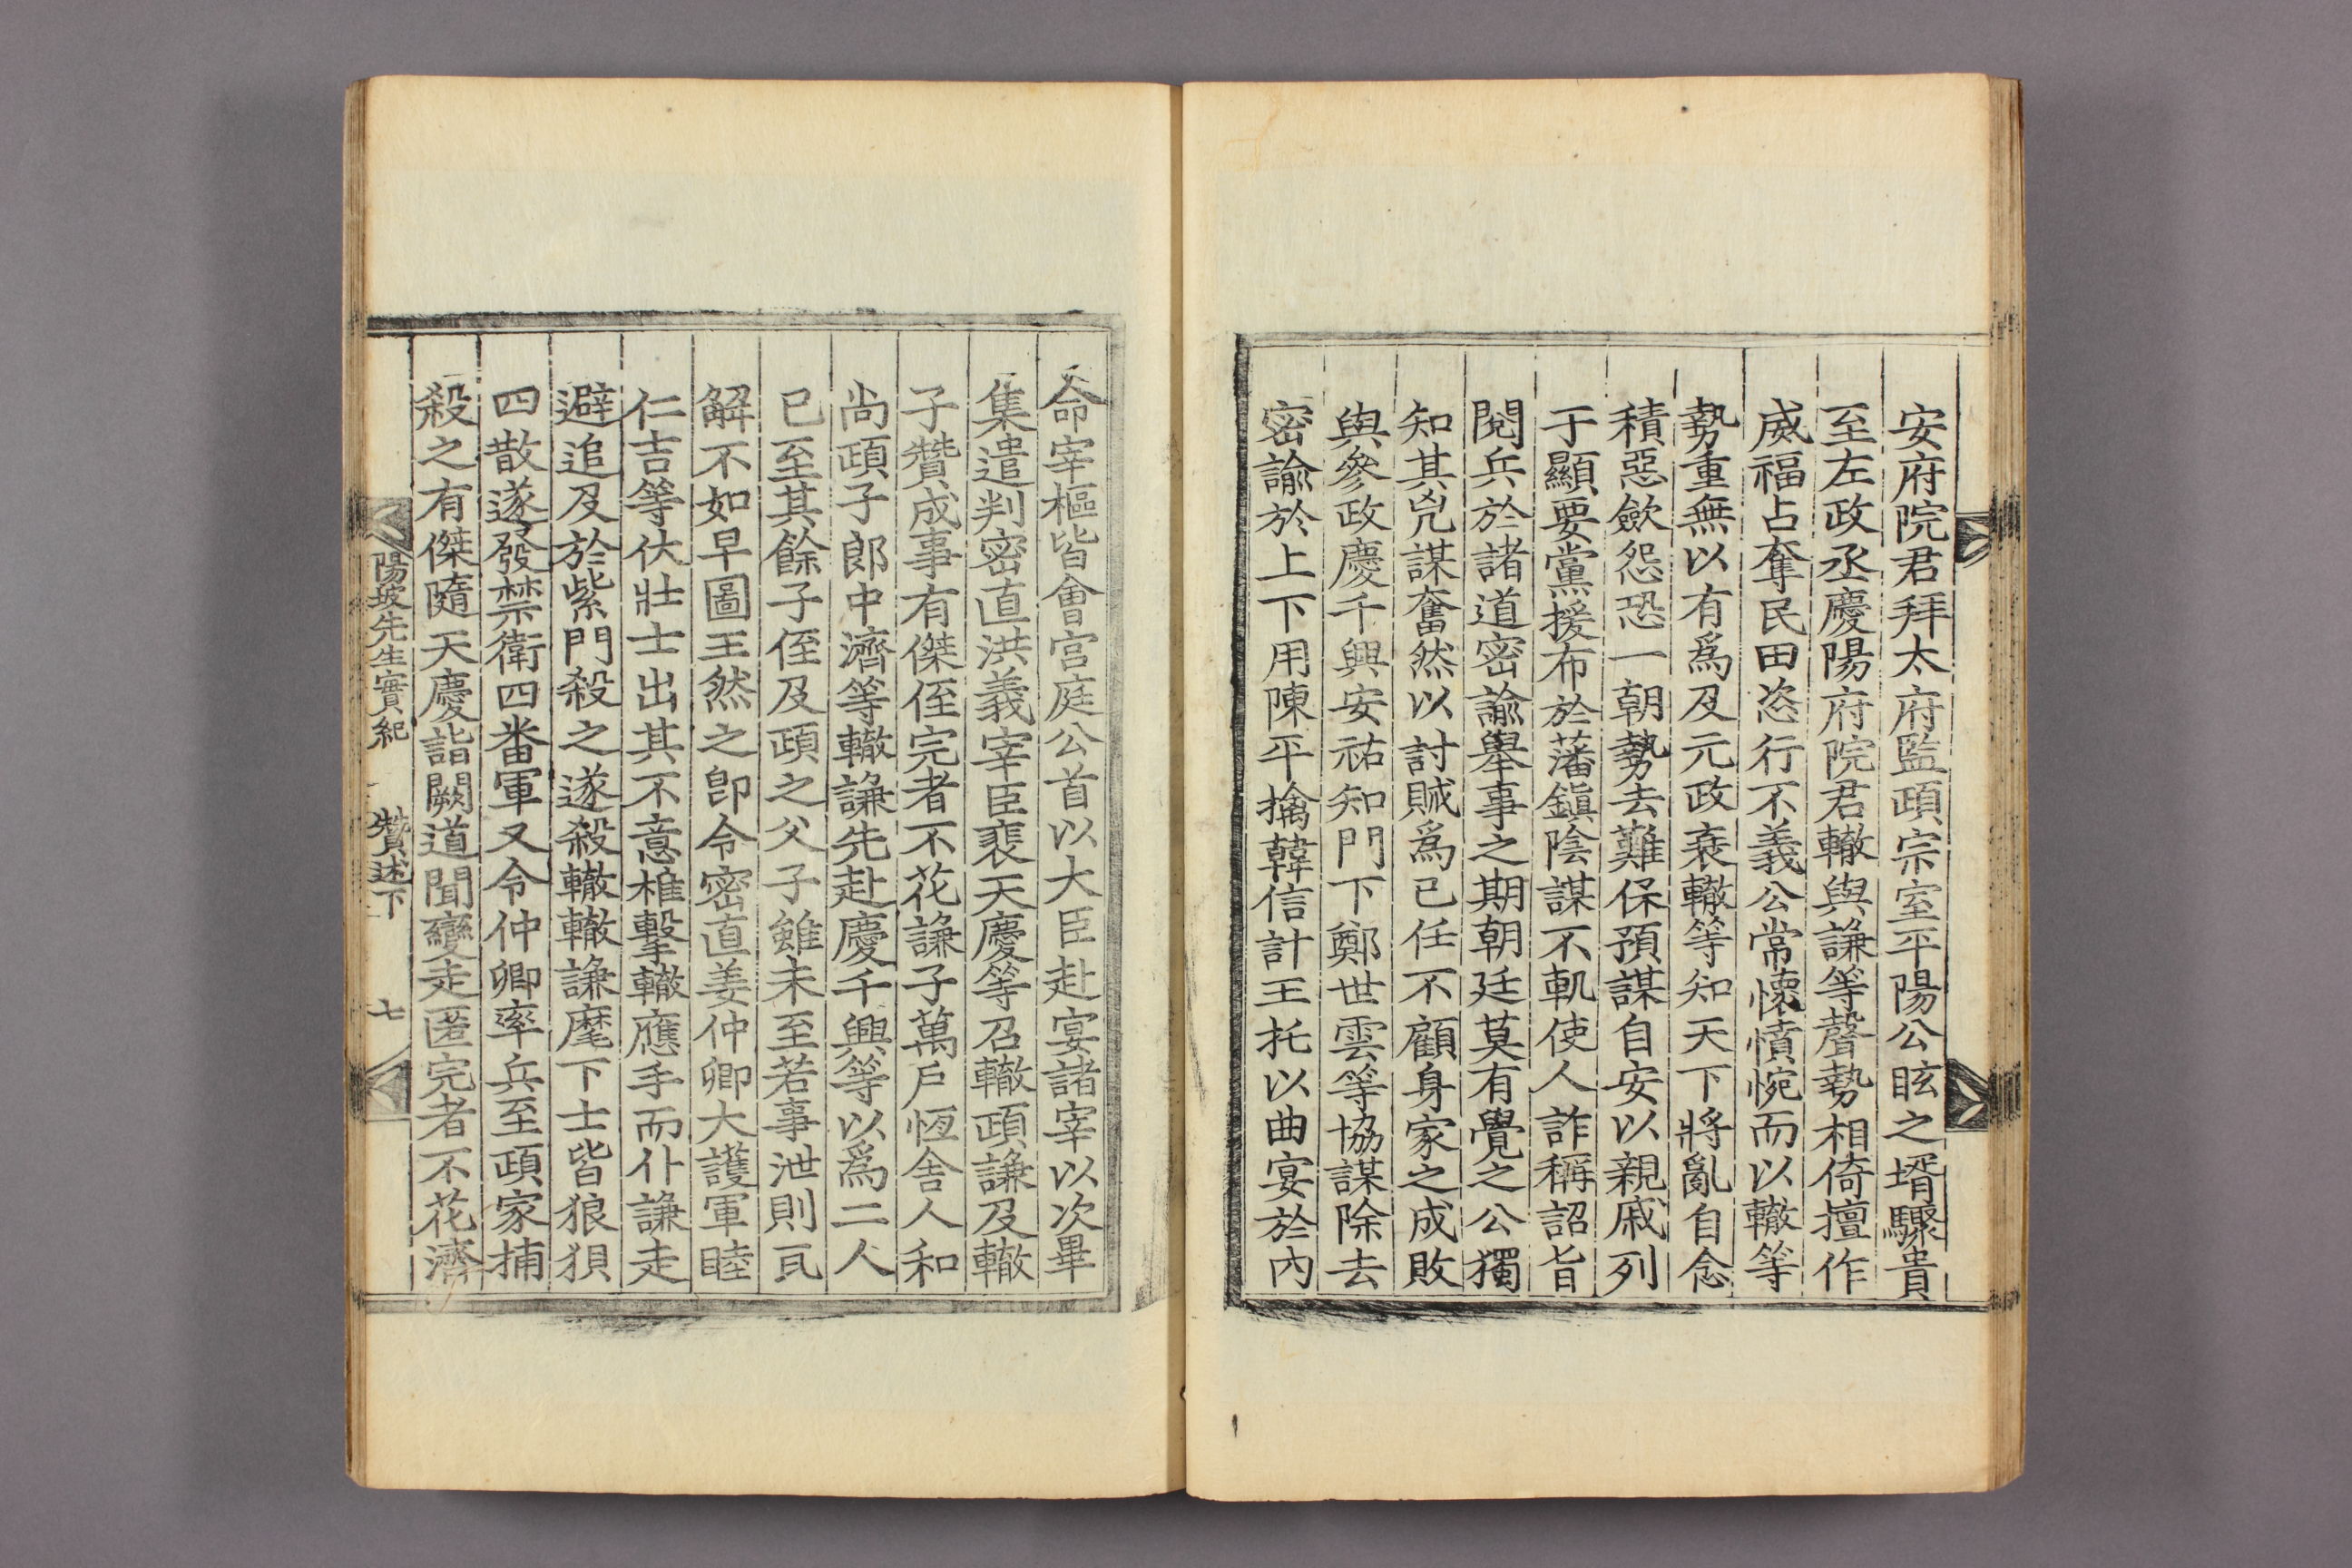 安府院君拜太府監頙宗室平陽公昡之壻驟貴
至左政丞慶陽府院君轍與謙等聲勢相倚擅作
威福占奪民田恣行不義公常懷憤惋而以轍等
勢重無以有爲及元政衰轍等知天下將亂自念
積惡斂怨恐一朝勢去難保預謀自安以親戚列
于顯要黨援布於藩鎭陰謀不軌使人詐稱詔旨
閱兵於諸道密諭擧事之期朝廷莫有覺之公獨
知其兇謀奮然以討賊爲己任不顧身家之成敗
與參政慶千興安祐知門下鄭世雲等協謀除去
密諭於上下用陳平擒韓信計王托以曲宴於內
命宰樞皆會宮庭公首以大臣赴宴諸宰以次畢
集遣判密直洪義宰臣裵天慶等召轍頙謙及轍
子贊成事有傑侄完者不花謙子萬戶恆舍人和
尙頙子郎中濟等轍謙先赴慶千興等以爲二人
已至其餘子侄及頙之父子雖未至若事泄則瓦
解不如早圖王然之卽令密直姜仲卿大護軍睦
仁吉等伏壯士出其不意椎擊轍應手而仆謙走
避追及於紫門殺之遂殺轍轍謙麾下士皆狼狽
四散遂發禁衛四番軍又令仲卿率兵至頙家捕
殺之有傑隨天慶詣闕道聞變走匿完者不花濟
陽坡先生實紀 贊述下 七